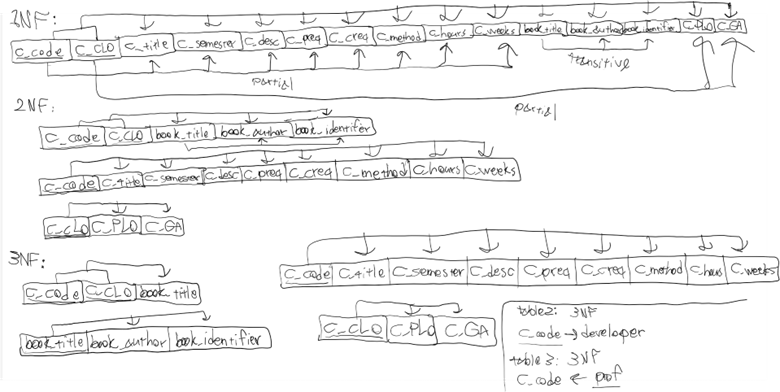 1NF:
C_code C_CLO C_title C_semester C_desc C_preq C_creq C_method C_hours C_weeks book_title book_author book_identifier C_PLO C_GA
partial
transitive
partial
2NF:
C_code C_CLO book_title book_author book_identifer
C_code C_title C_semester C_desc C_preq C_creq C_method C_hours C_weeks
C_CLO C_PLO C_GA
3NF:
C_code C_CLO book_title
book_title book_author book_identifier
C_code C_title C_semester C_desc C_preq C_creq C_method C_hours C_weeks
C_CLO C_PLO C_GA
table2: 3NF
C_code → developer
table 3: 3NF
C_code ← prof